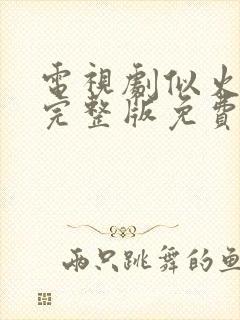 電視劇似火
完整版免費
兩只跳舞的魚